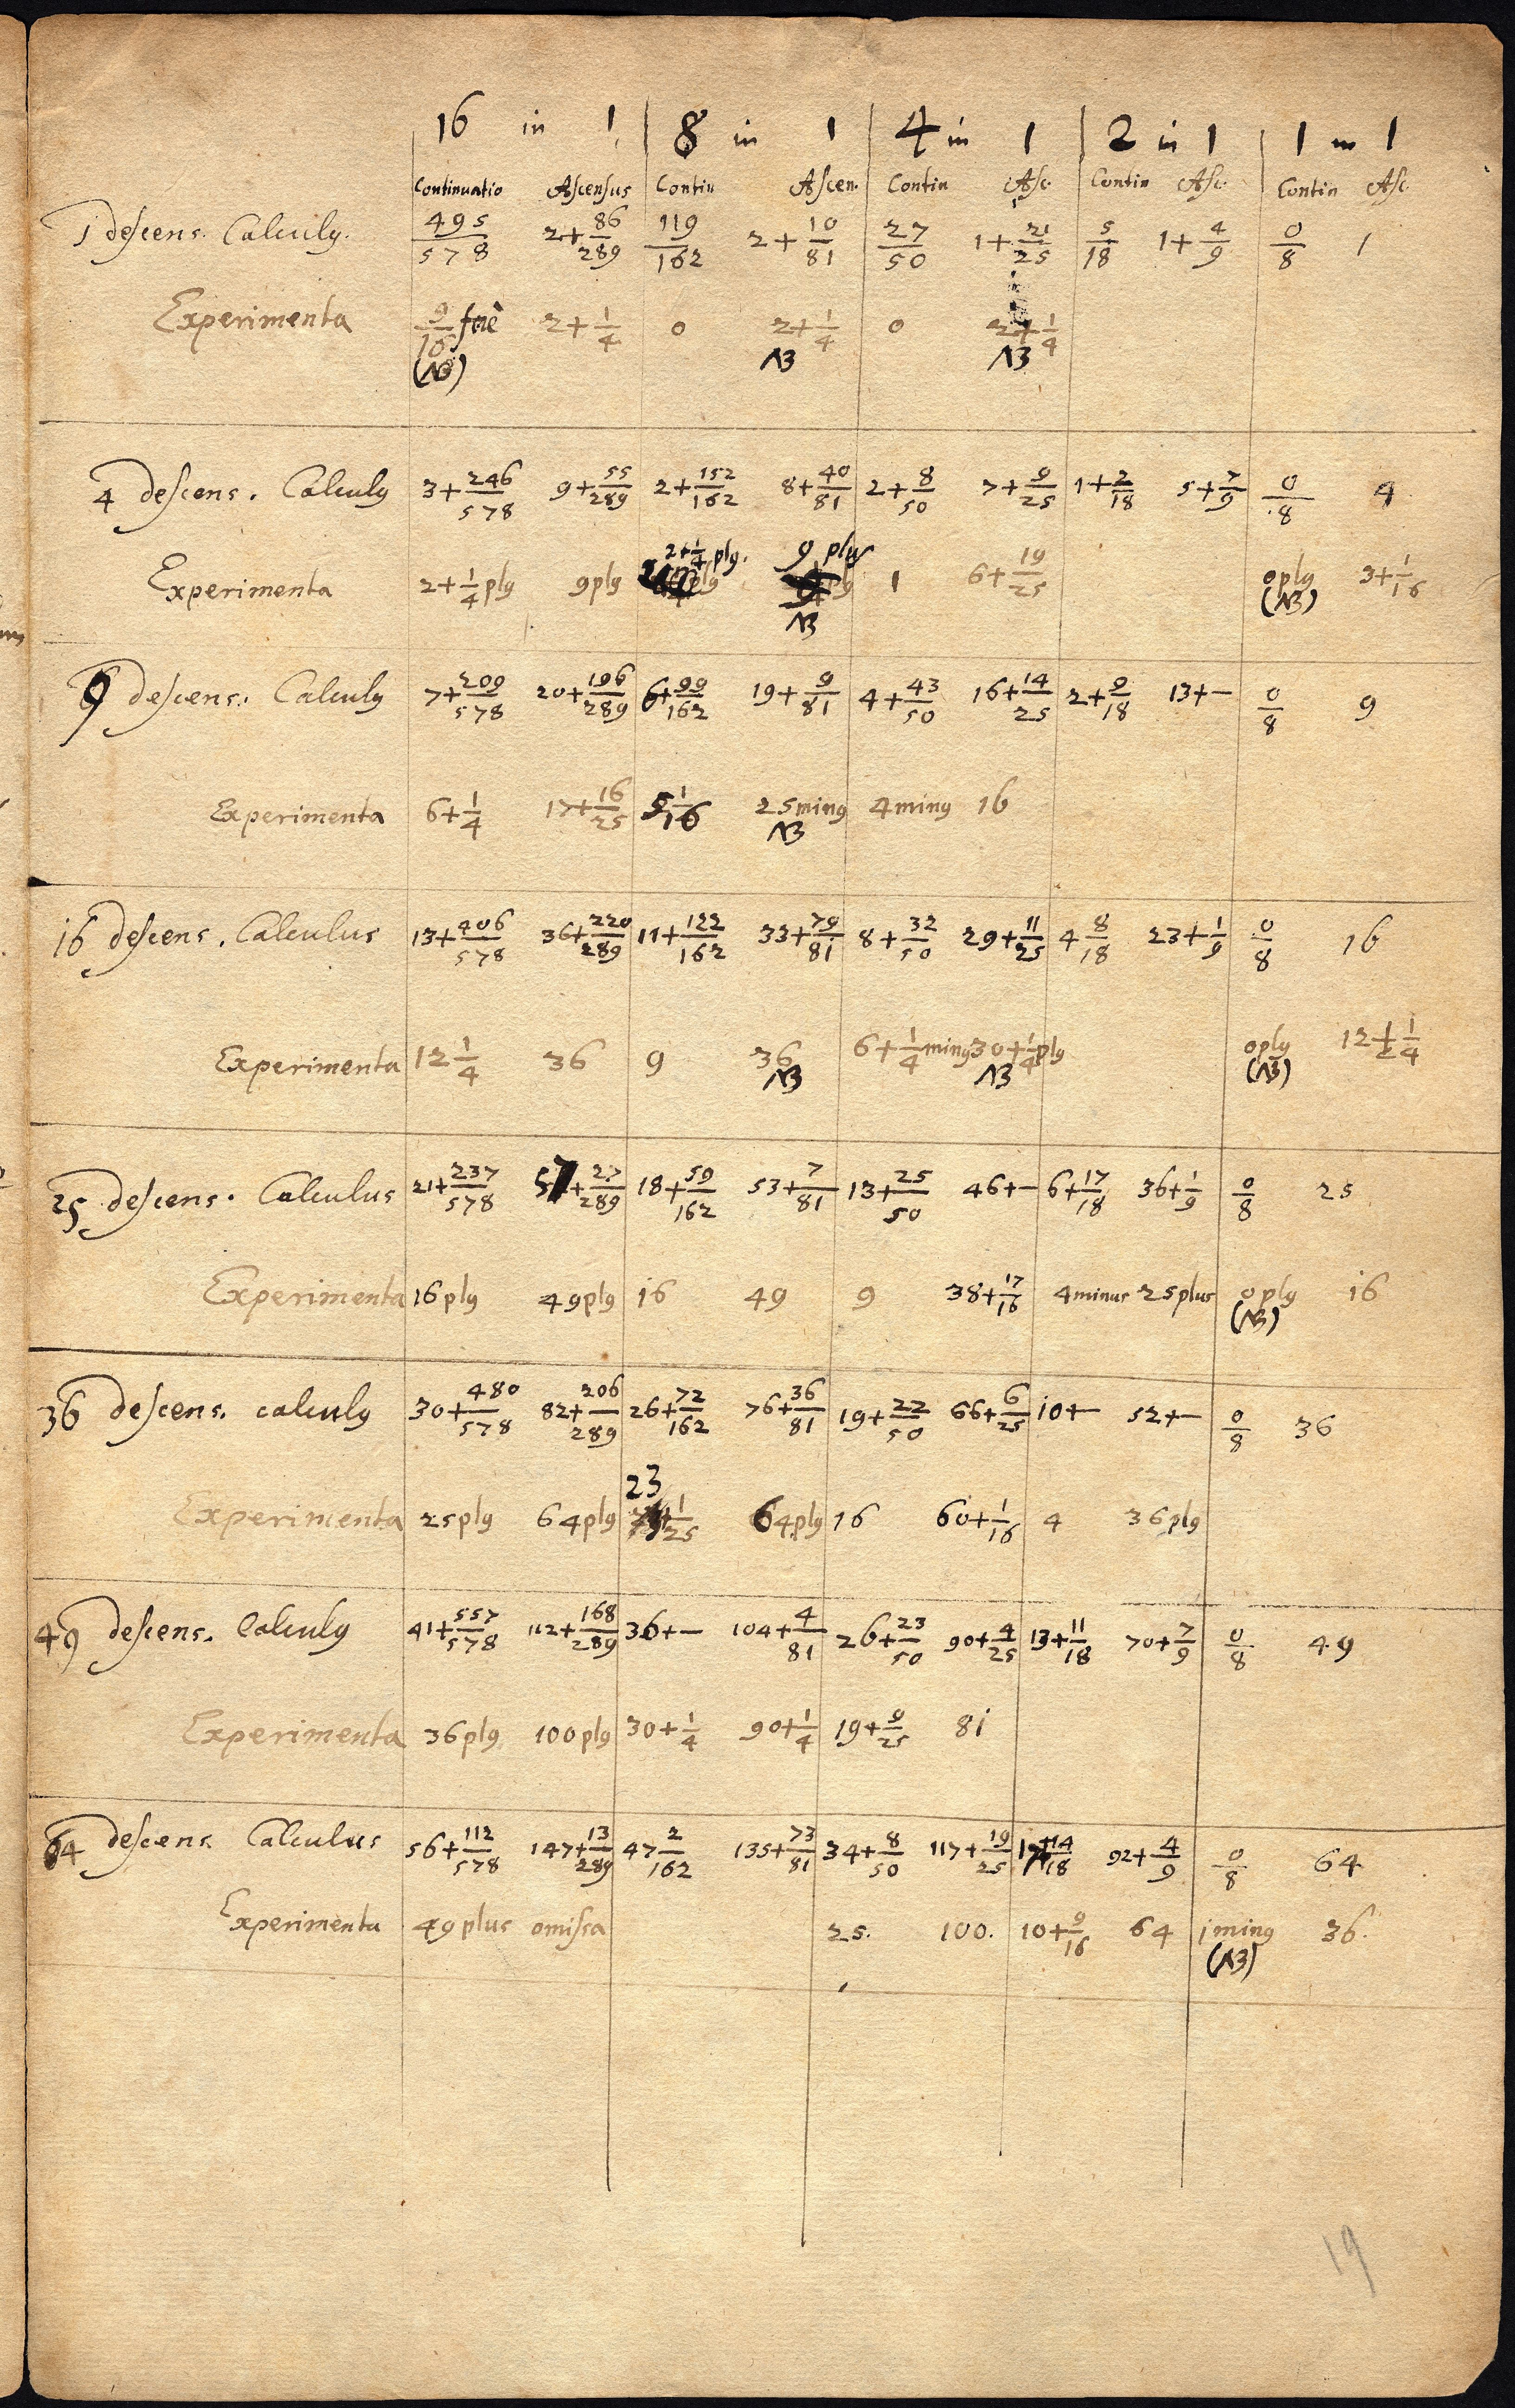 16 in 1 8 in 1 4 in 1 2 in 1 1 in 1
Continuatio Ascensus Contin Ascen. Contin Asc. Contin Asc. Contin Asc.
1 descens. Calculꝰ. 495/578 2+86/289 119/162 2+10/81 27/50 1+21/25 5/18 1+4/9 0/8 1
Experimenta 9/16 ferè 2+1/4 0 2+1/4 0 2+1/4
(NB) NB NB
4 descens. Calculꝰ 3+246/578 9+55/289 2+152/162 8+40/81 2+8/50 7+9/25 1+2/18 5+7/9 0/8 4
2+1/4 plꝰ. 9 plus
Experimenta 2+1/4 plꝰ 9 plꝰ 1 6+19/25 0 plꝰ 3+1/16
NB (NB)
9 descens. Calculꝰ 7+209/578 20+196/289 6+99/162 19+9/81 4+43/50 16+14/25 2+9/18 13+– 0/8 9
Experimenta 6+1/4 17+16/25 5 1/16 25 minꝰ 4 minꝰ 16
NB
16 descens. Calculus 13+406/578 36+220/289 11+122/162 33+79/81 8+32/50 29+11/25 4 8/18 23+1/9 0/8 16
Experimenta 12 1/4 36 9 36 6+1/4 minꝰ 30+1/4 plꝰ 0 plꝰ 12+1/4
NB NB (NB)
25 descens. Calculus 21+237/578 57+27/289 18+59/162 53+7/81 13+25/50 46+– 6+17/18 36+1/9 0/8 25
Experimenta 16 plꝰ 49 plꝰ 16 49 9 38+17/16 4 minus 25 plus 0 plꝰ 16
(NB)
36 descens. calculꝰ 30+480/578 82+206/289 26+72/162 76+36/81 19+22/50 66+6/25 10+– 52+– 0/8 36
23
Experimenta 25 plꝰ 64 plꝰ 1/25 64 plꝰ 16 60+1/16 4 36 plꝰ
49 descens. Calculꝰ 41+557/578 112+168/289 36+– 104+4/81 26+23/50 90+4/25 13+11/18 70+7/9 0/8 49
Experimenta 36 plꝰ 100 plꝰ 30+1/4 90+1/4 19+9/25 81
64 descens. Calculus 56+112/578 147+13/289 47 2/162 135+73/81 34+8/50 117+19/25 17+14/18 92+4/9 0/8 64
Experimenta 49 plus omissa 25. 100. 10+9/16 64 1 minꝰ 36.
(NB)
19